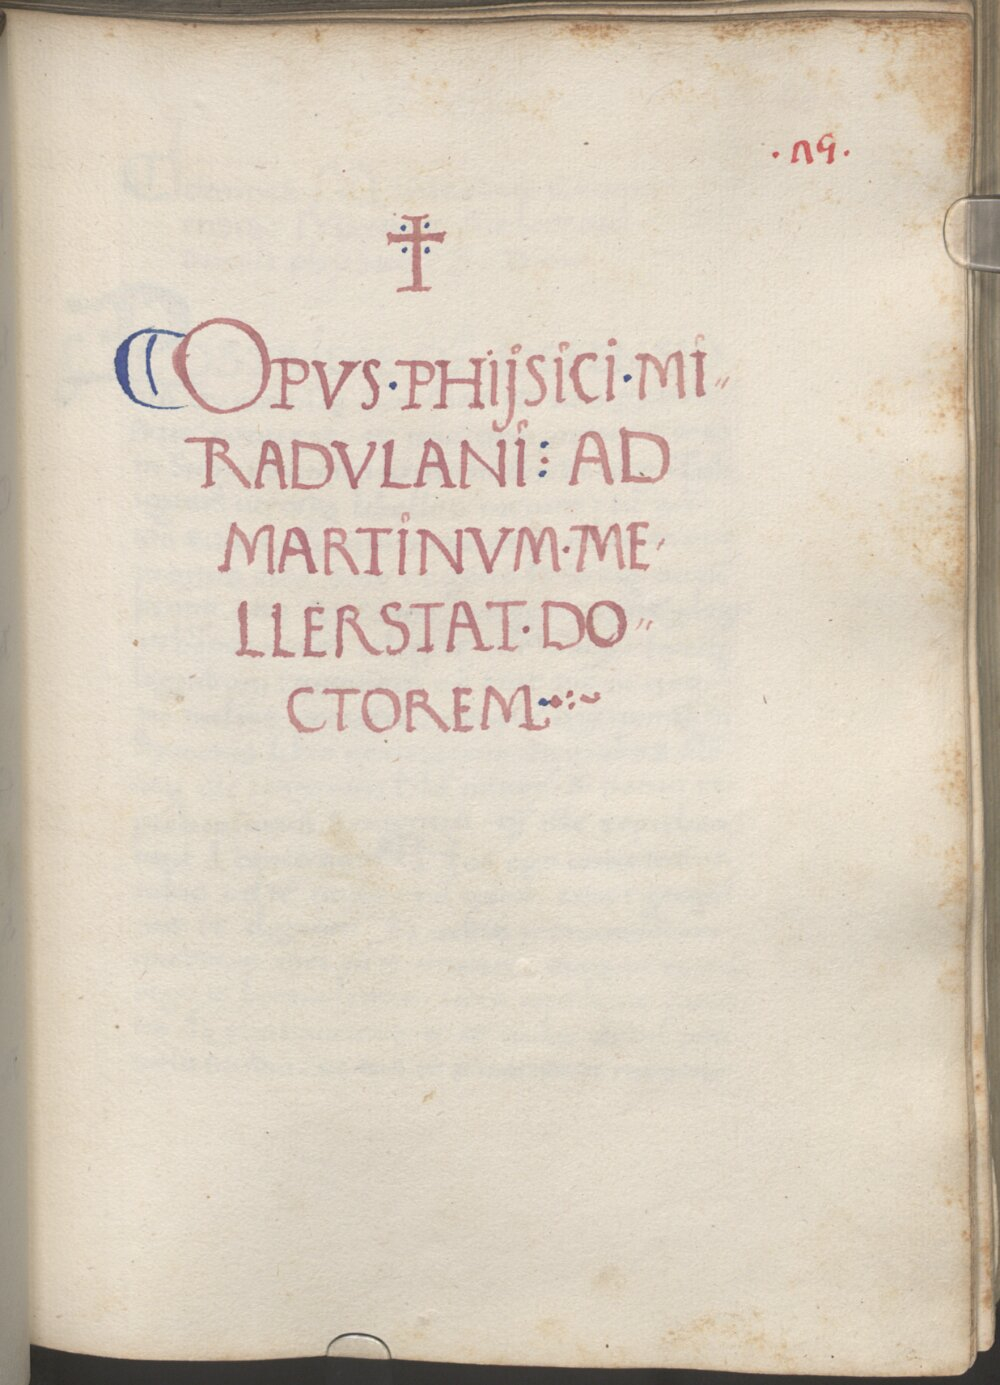 .119.
OPVS·PHIJSICI·MI〃
RADVLANI⁝ AD
MARTINVM·ME
LLERSTAT·DO〃
CTOREM